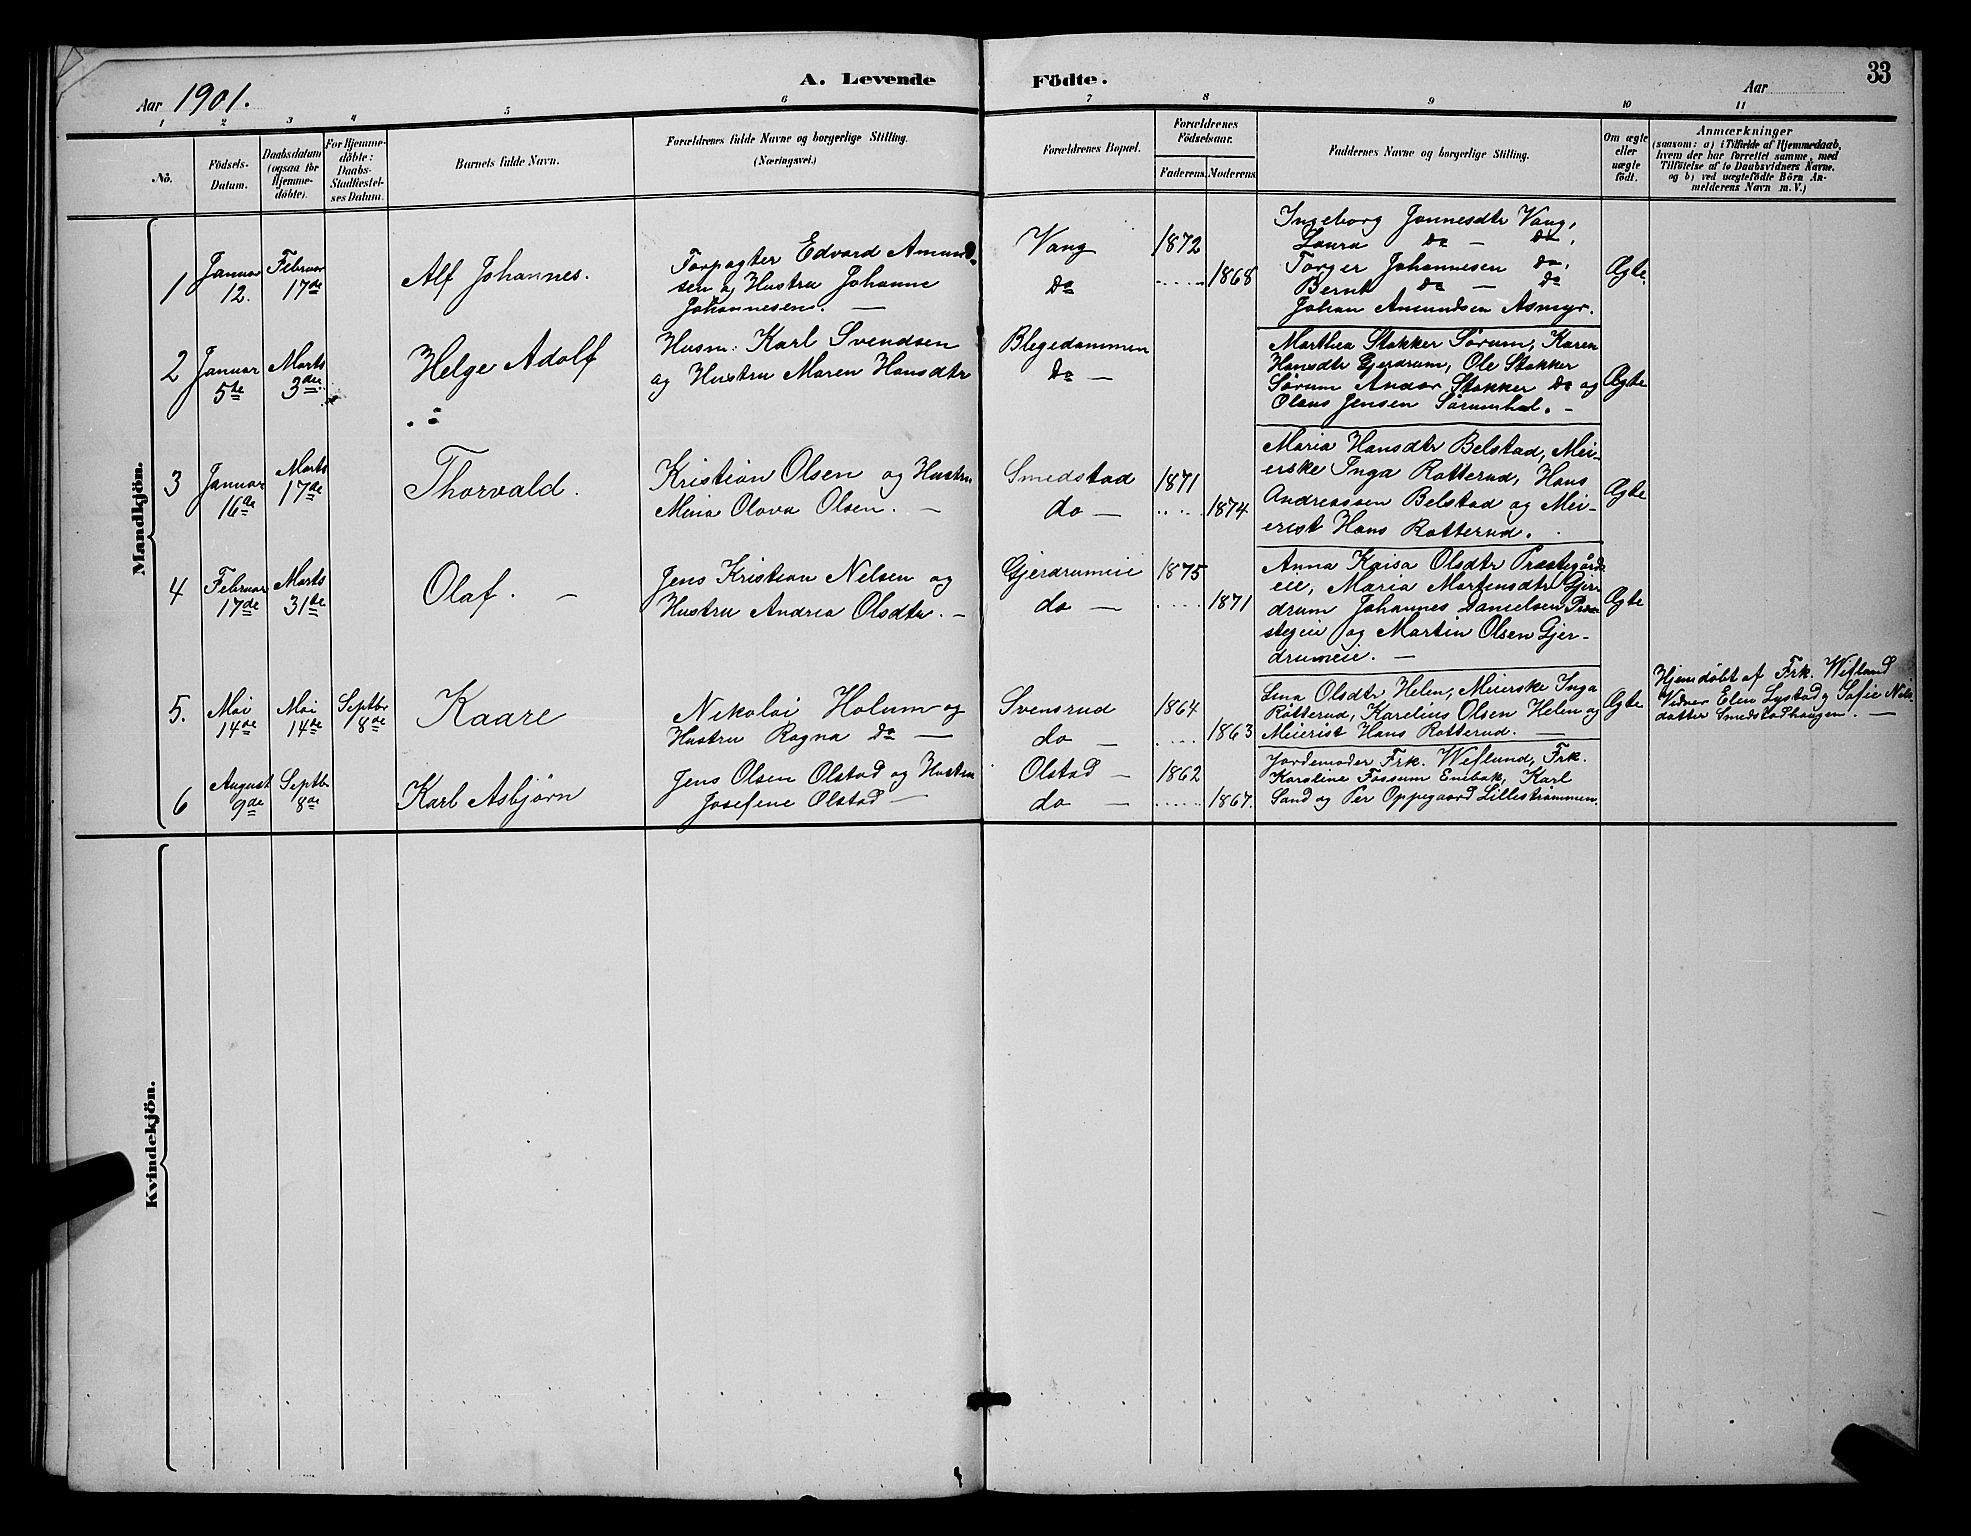 33
A. Levende Födte.
Aar 1901.
Aar
1 2 3 4 5 6 7 8 9 10 11
No.
Födsels-
Datum.
Daabsdatum
(ogsaa for
Hjemme-
döbte).
For Hjemme-
döbte:
Daabs-
Stadfæstel-
ses Datum.
Barnets fulde Navn.
Forældrenes fulde Navne og borgerlige Stilling.
(Næringsvei.)
Forældrenes Bopæl.
Forældrenes
Födselsaar.
Faderens. Moderens.
Faddernes Navne og borgerlige Stilling.
Om ægte
eller
uægte
født.
Anmærkninger
(saasom: a) i Tilfælde af Hjemmedaab,
hvem der har forrettet samme, med
Tilföielse af to Daabsvidners Navne.
og b) ved uægtefödte Börn An-
melderens Navn m. V.)
Mandkjön.
1
Januar
12.
Februar
17de
Alf Johannes.
Forpagter Edvard Amund-
sen og Hustru Johanne
Johannesen. —
Vang
Do
1872
1868
Ingeborg Jonnesdtr Vang,
Laura Do — Do,
Torger Johannesen Do,
Bernt Do — Do
Johan Amundsen Asmyr.
Ægte.
2
Januar
5te
Marts
3die
Helge Adolf
Husm: Karl Svendsen
og Hustru Maren Hansdtr
Blegedammen
Do —
Marthea Stokker Sørum, Karen
Hansdtr Gjerdrum, Ole Stokker
Sørum Andor Stokker Do og
Olaus Jensen Sørumhol. —
Ægte
3
Januar
16de
Marts
17de
Thorvald.
Kristian Olsen og Hustru
Mina Olava Olsen. —
Smedstad
do —
1871
1874
Maria Hansdtr Belstad, Mei-
erske Inga Rotterud, Hans
Andreassen Belstad og Mei-
erist Hans Rotterud.
Ægte
4
Februar
17de
Marts
31te
Olaf. —
Jens Kristian Nelsen og
Hustru Andrea Olsdtr. —
Gjerdrumeie
do —
1875
1871
Anna Kaisa Olsdtr Præstegårds
eie, Maria Martinsdtr Gjer-
drum Johannes Danielsen Præ-
stegeie og Martin Olsen Gjer-
drumeie. —
Ægte
5.
Mai
14de
Mai
14de
Septbr
8de
Kaare
Nikolai Holum og
Hustru Ragna Do —
Svensrud
do —
1864
1863
Lina Olsdtr Helen, Meierske Inga
Rotterud, Karelius Olsen Helen og
Meierist Hans Rotterud. —
Ægte
Hjemdøbt af Frk. Wiflund
Vidner Elen Lystad og Sofie Nils-
datter Smedstadhaugen. —
6
August
9de
Septbr
8de
Karl Asbjørn
Jens Olsen Olstad og Hustru
Josefine Olstad —
Olstad —
do —
1862
1867.
Jordemoder Frk. Weflund, Frk.
Karoline Fossum Enebak, Karl
Sand og Per Oppegaard Lillestrømmen.
Kvindekjön.